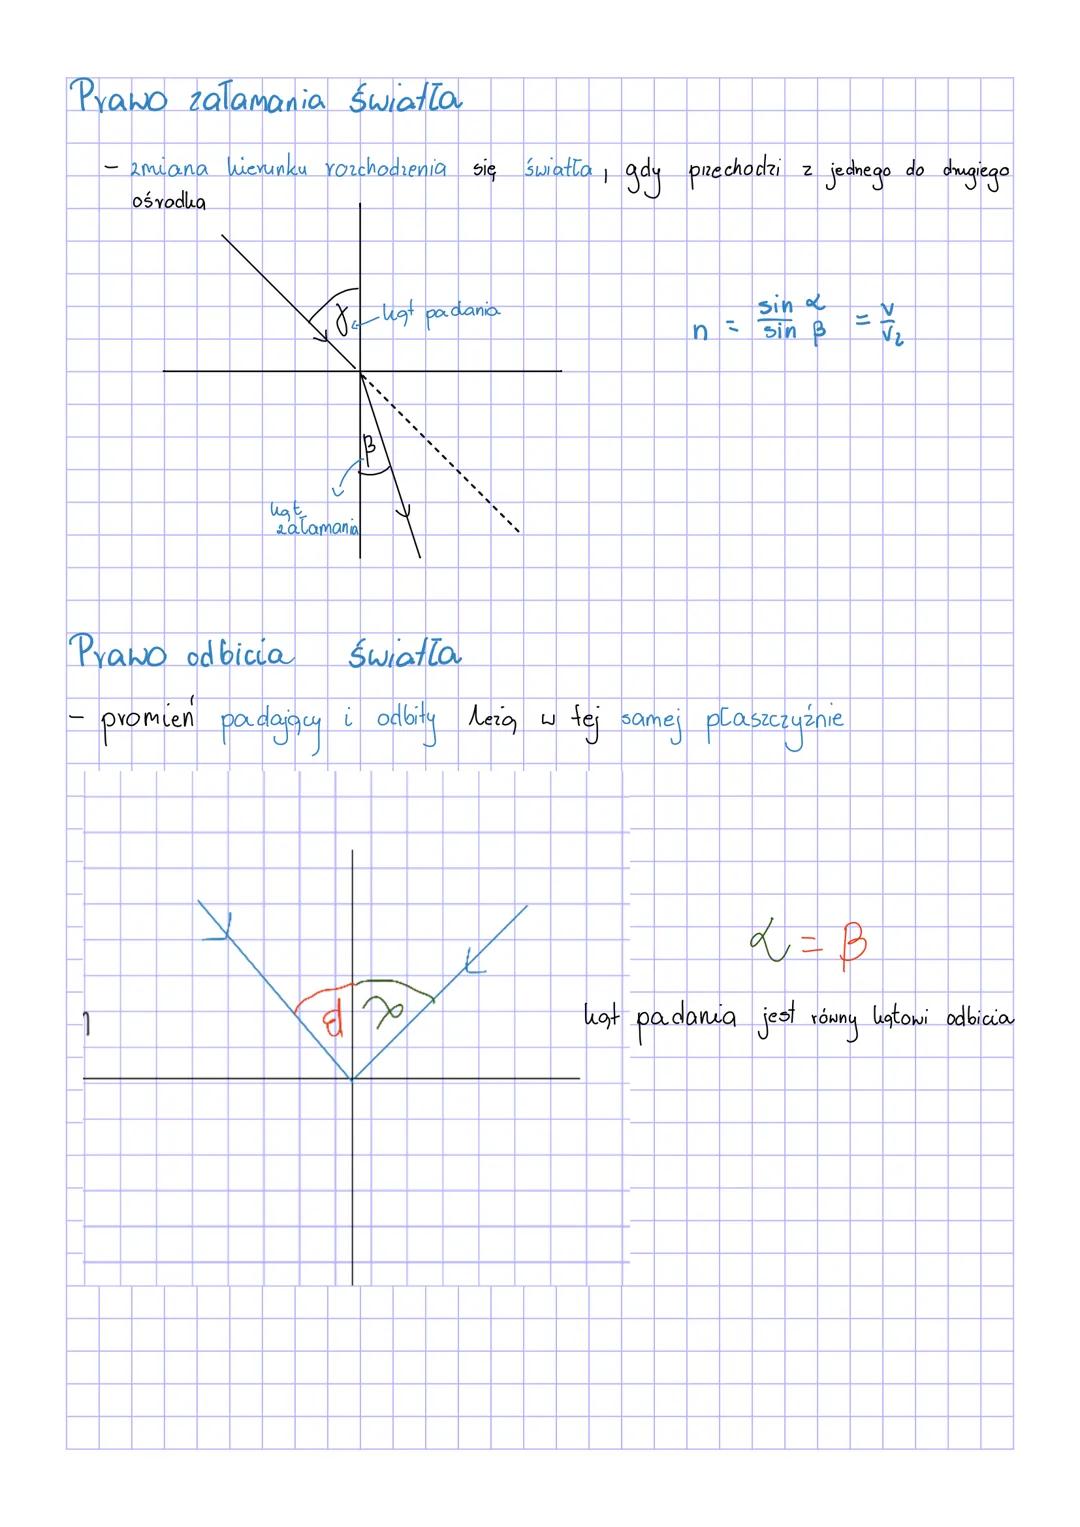 Prawo załamania światła
- zmiana kierunku rozchodzenia się światła, gdy przechodzi z jednego do drugiego
ośrodka
γ kąt padania
n = sin α / sin β = v / v₂
β
kąt
załamania
Prawo odbicia światła
- promień padający i odbity leżą w tej samej płaszczyźnie
α = β
β α
kąt padania jest równy kątowi odbicia